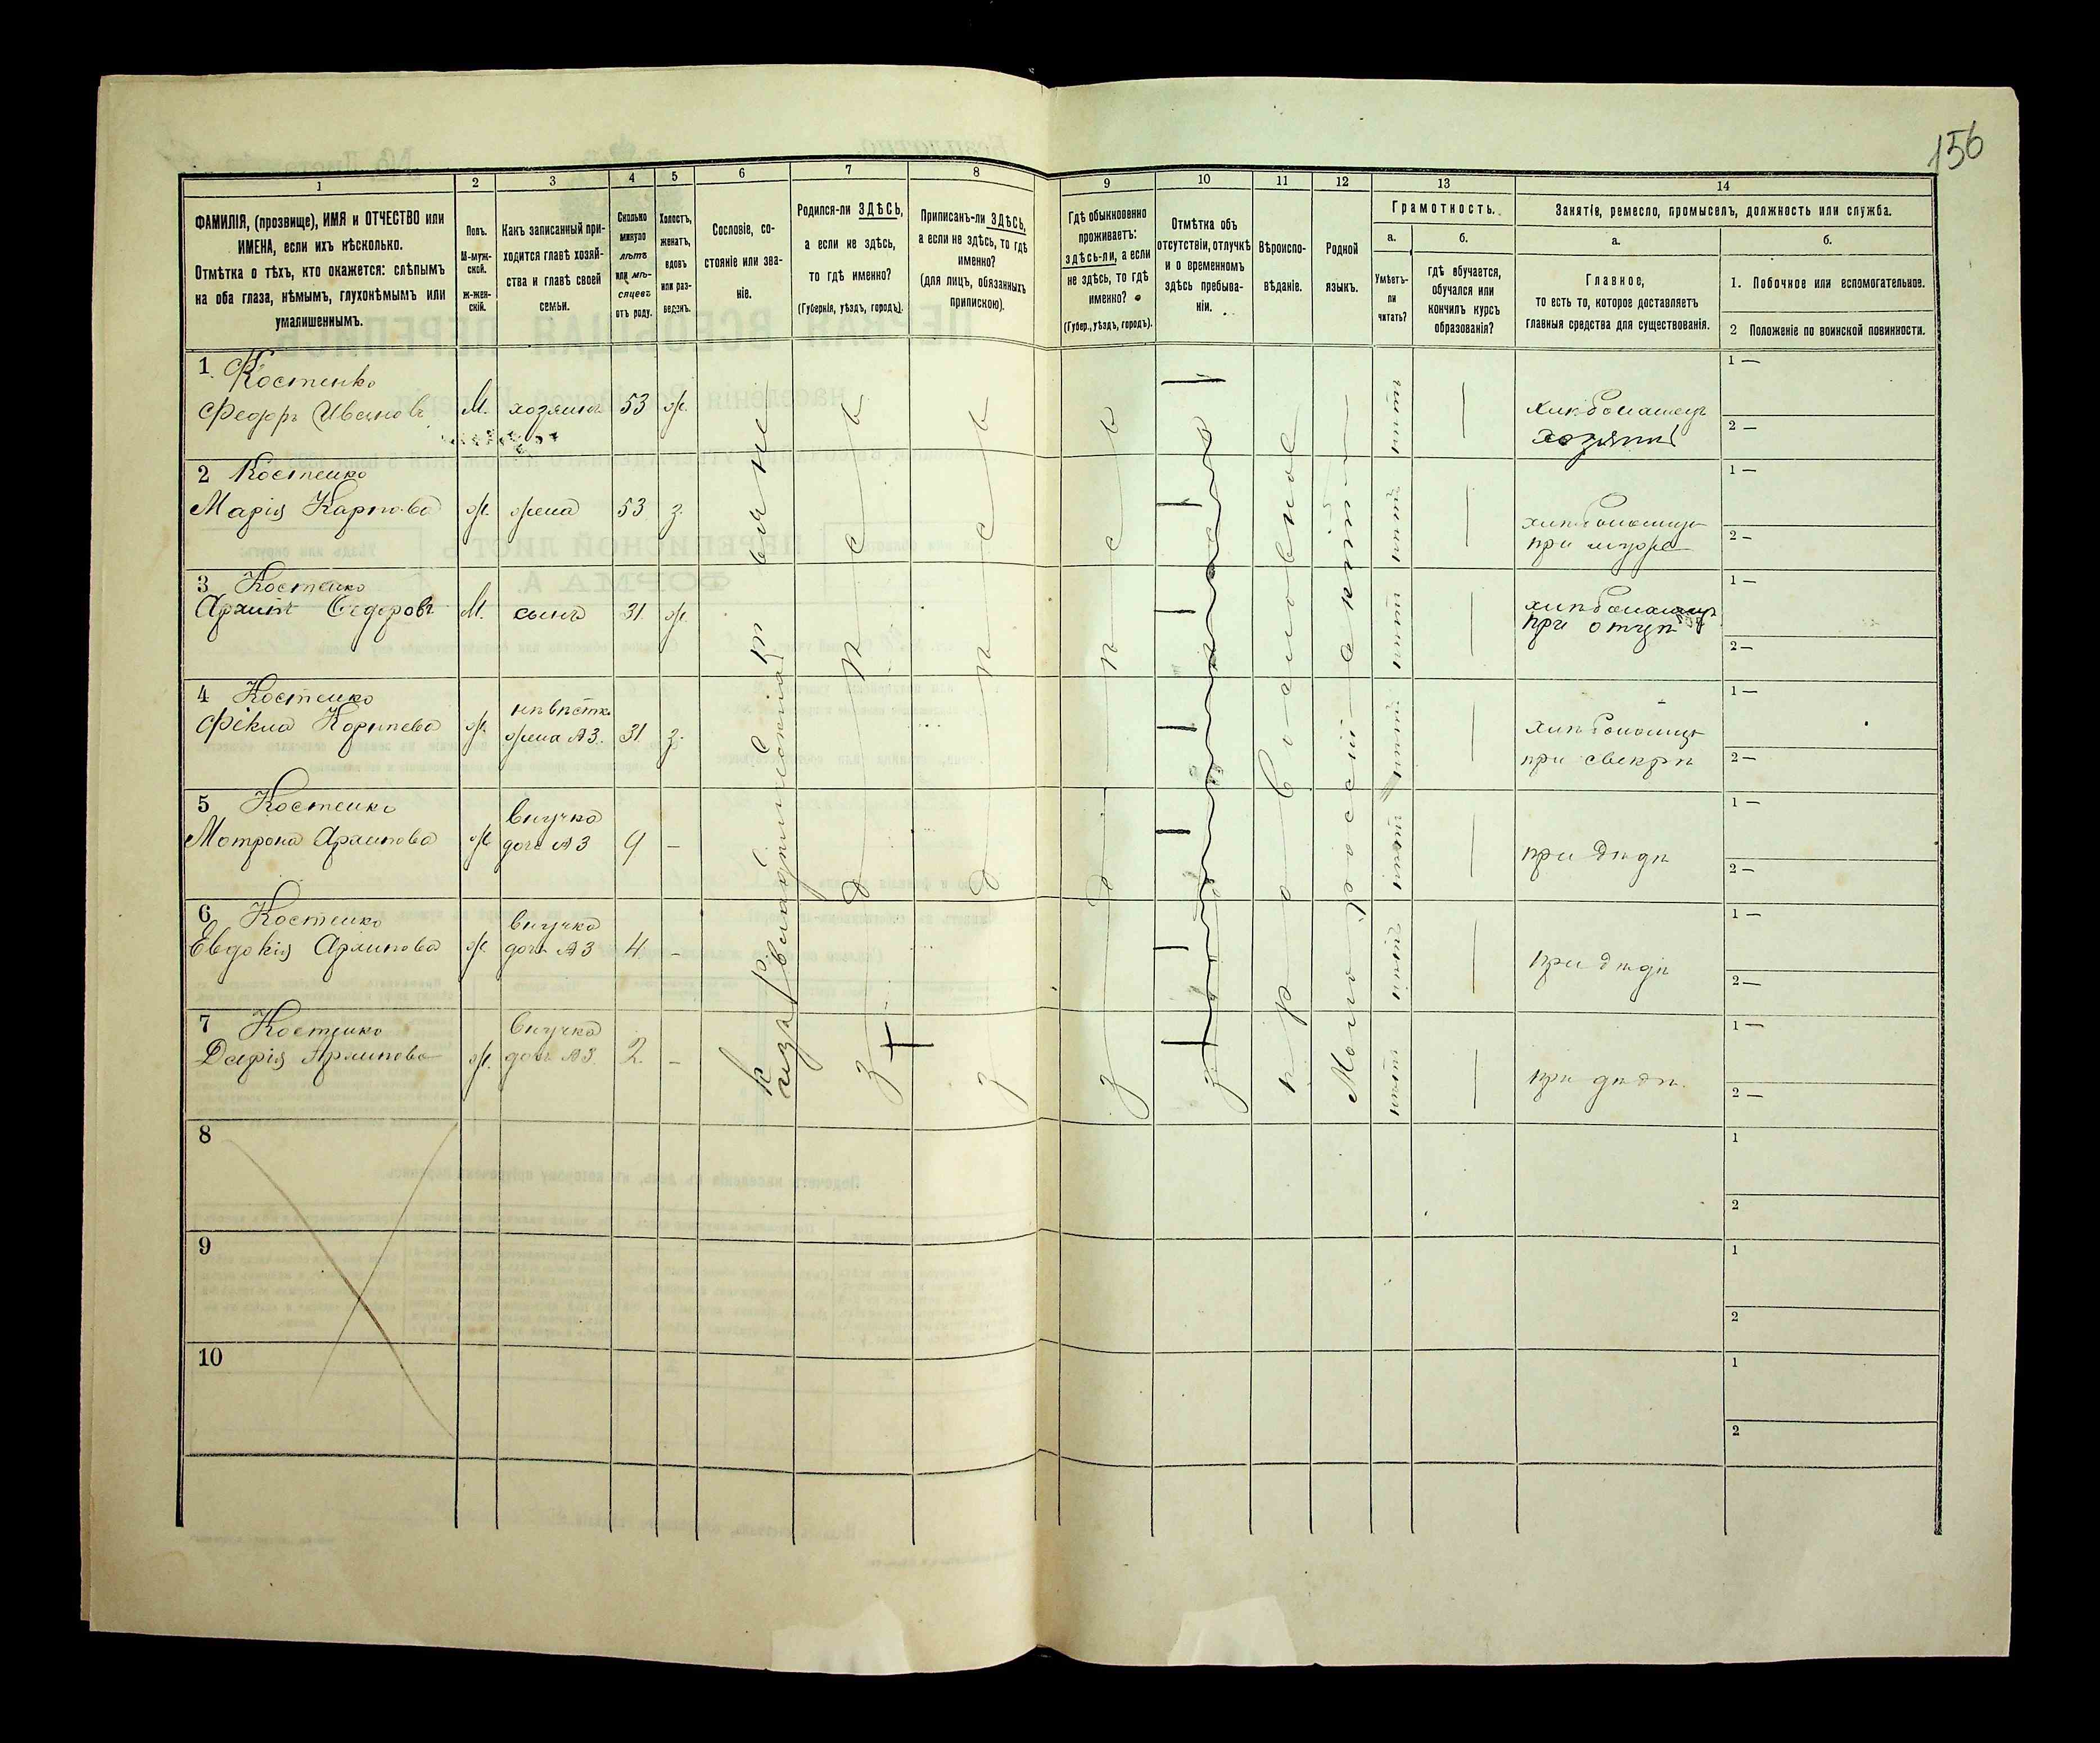 156
1
2
3
4
5
6
7
8
9
10
11
12
13
14
ФАМИЛІЯ, (прозвище), ИМЯ и ОТЧЕСТВО или
ИМЕНА, если ихъ нѣсколько.
Отмѣтка о тѣхъ, кто окажется: слѣпымъ
на оба глаза, нѣмымъ, глухонѣмымъ или
умалишеннымъ.
Полъ.
М-муж-
ской.
Ж-жен-
скій.
Какъ записанный при-
ходится главѣ хозяй-
ства и главѣ своей
семьи.
Сколько
минуло
лѣтъ
или мѣ-
сяцевъ
отъ роду.
Холостъ,
женатъ,
вдовъ
или раз-
веденъ.
Сословіе, со-
стояніе или зва-
ніе.
Родился-ли ЗДѢСЬ,
а если не здѣсь,
то гдѣ именно?
(Губернія, уѣздъ, городъ).
Приписанъ-ли ЗДѢСЬ,
а если не здѣсь, то гдѣ
именно?
(для лицъ, обязанныхъ
припискою).
Гдѣ обыкновенно
проживаетъ:
здѣсь-ли, а если
не здѣсь, то гдѣ
именно?
(Губер., уѣздъ, городъ).
Отмѣтка объ
отсутствіи, отлучкѣ
и о временномъ
здѣсь пребыва-
ніи.
Вѣроиспо-
вѣданіе.
Родной
языкъ.
Грамотность.
а.
Умѣетъ-
ли
читать?
б.
гдѣ обучается,
обучался или
кончилъ курсъ
образованія?
Занятіе, ремесло, промыселъ, должность или служба.
а.
Главное,
то есть то, которое доставляетъ
главныя средства для существованія.
б.
1. Побочное или вспомогательное.
2 Положеніе по воинской повинности.
1 Костенко
Федоръ Ивановъ М. хозяинъ 53 ж. — хлѣбопашецъ
хозяинъ
1 —
2 —
2 Костенко
Марія Карпова ж. жена 53 з. — хлѣбопашецъ
при мужѣ
1 —
2 —
3 Костенко
Архипъ Федоровъ М. сынъ 31 ж. — хлѣбопашецъ
при отцѣ
1 —
2 —
4 Костенко
Фекла ж. невѣстка
жена А3. 31 з. — хлѣбопашецъ
при свекрѣ
1 —
2 —
5 Костенко
Мотрона Архипова ж. внучка
дочь А3 9 — — при дѣдѣ
1 —
2 —
6 Костенко
Евдокія Архипова ж. внучка
дочь А3 4 — — при дѣдѣ
1 —
2 —
7 Костенко
Дарія Архипова ж. внучка
дочь А3 2 — — при дѣдѣ
1 —
2 —
изъ владѣльческихъ
здѣсь
здѣсь
здѣсь
православное
Малороссійскій
8
1
2
9
1
2
10
1
2